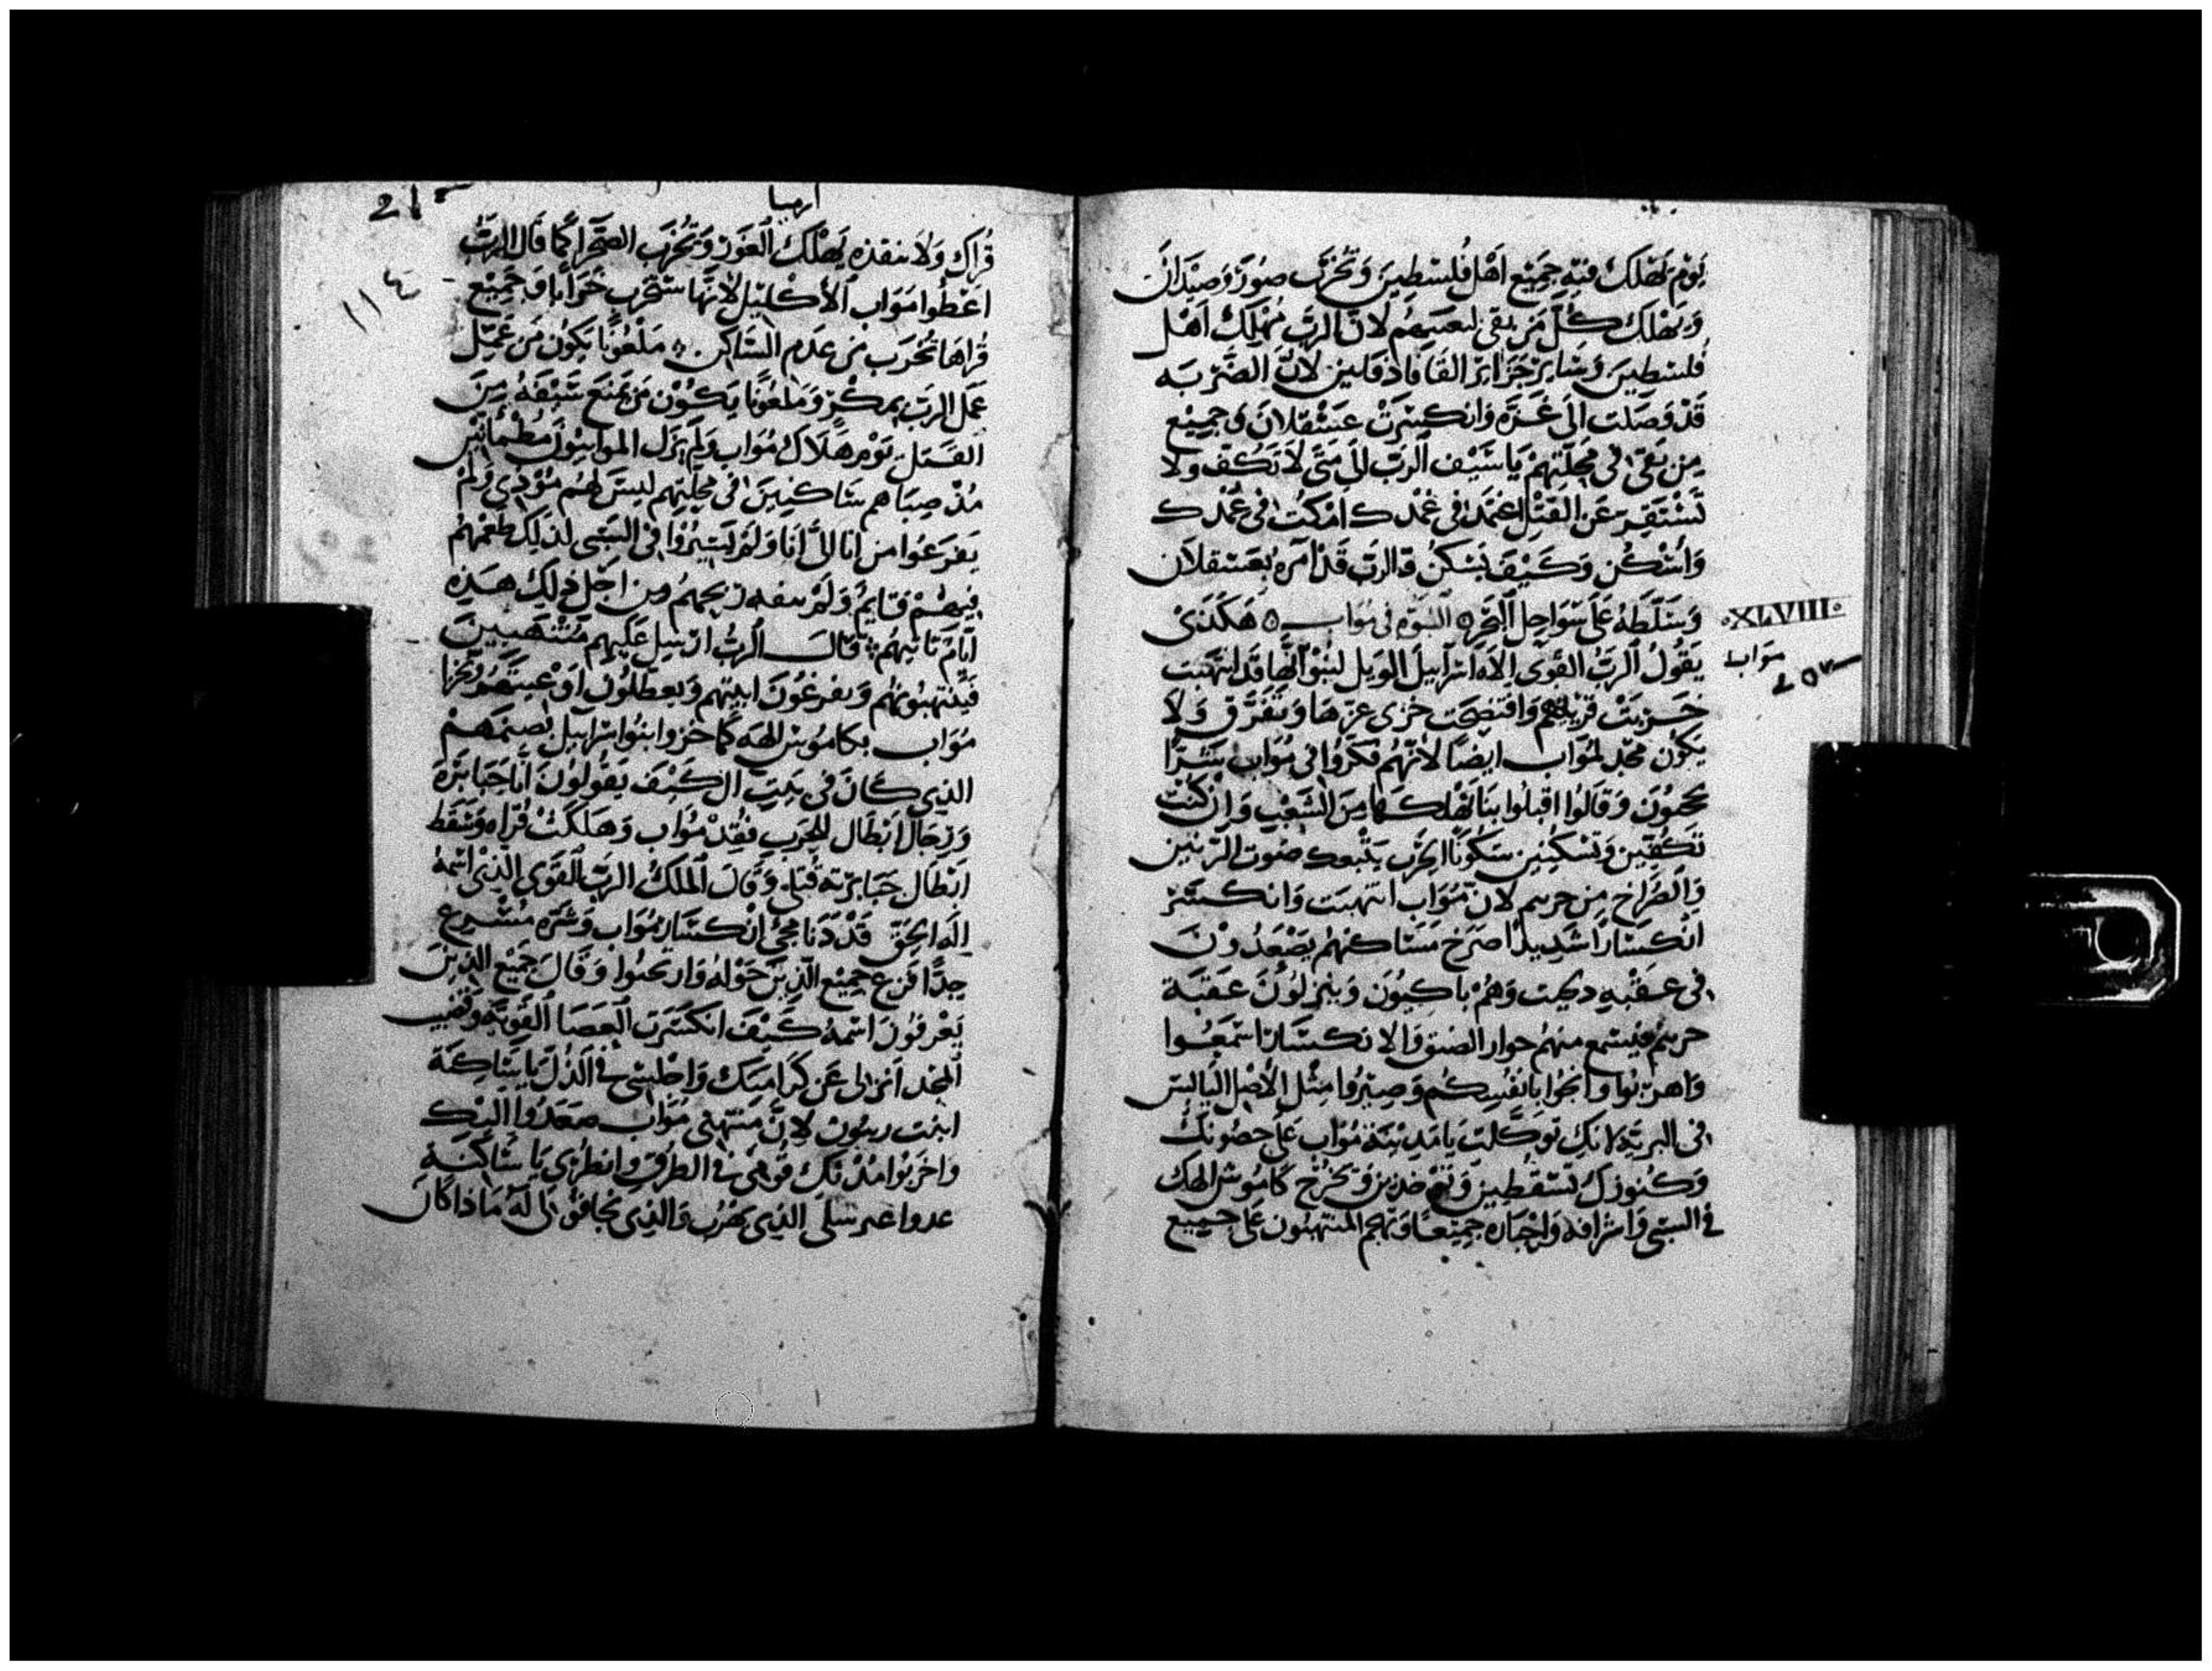 يَوْم يَهْلك فيه جَميْع اَهْل فُلسْطِينَ وَتخْرَب صوُر وَصَيْدَان
وَيهْلك كُلّ مَن بقى لَان الرَبّ مُهْلِك اَهْل
فلسْطِينَ وَسَاير جَزَاير لان الضَرْبَه
قَدْ وَصَلت الى غَزَه وَانكسَرتْ عَسْقلانَ وَجميْع
مِن بَقى فى مَحِلّتِهمْ يَا سَيْف الرَبّ اِلَى مَتَى لَا تَكُف وَلَا
تَسْتَقِر عَن القَتْل اِغمَد فى غمْدك امْكث فى غمْدك
وَاسْكُن وَكَيْفَ يَسْكن وَالرَب قَدْ اَمَرَه بعَسْقلاَن
وَسَلّطه عَلى سَوَاحِل البَحْر النبوَه فى مُوَاب هَكذَى
XLVIII
موَاب
يَقُولُ الرَبُّ القوَى الاَه اسْرَاييلَ الوَيل لنبُوْ لانَّها قد انتهَبت
خَرِبتْ وَافتضحَت خزى عزهَا وَتفَرَّق وَلَا
يَكوُن مَجْد لموَاب ايضًا لأنّهُم فكَرُوا فى مُوَاب شَرًّا
وَقَالوُا اقبلوُا بنَا نَهْلكهَا مِنَ الشَعْبِ وَان كُنْت
تكفّين وَتسْكنِين سكوُنًا الحَرْب يتْبعك صَوت الرّنين
وَالصُرَاخ مِن حريم لان مُوَاب انتهبَت وَانكسَرْ
انْكسَارًا شديدًا اصرَخ مسَاكنهُم يصْعَدوُنَ
فى عَقْبهِ وَهُمْ بَاكيُون وَينزلوُنَ عَقَبَة
حريم فيسْمع منهُم الضيق وَالانكسَار اسْمَعُوا
وَاهربُوا وَانجُوا بانفُسِكُم وَصِيرُوا مِثل الأصْل اليَابس
فى البريَّه لانك توَكّلت يَا مَدِينَة مُوَاب عَلى حصُونك
وَكنُوزك تسْقطين وَتوخذين وَيخرُج كامُوش الهك
فى السَبى وَاشرَافه وَاحْبَاره جميْعًا وَيهجم المنتهبُون عَلى جميع
ارميا
١١٤
قُرَاك وَلَا منقذه يَهْلك الغوَر وَتَخْرَب الصَحْرَا كمَا قَال الرَبّ
اعْطوا موَاب الأكليْل لأنّهَا ستَخْرب خَرَابًا وَجَميْع
قُرَاهَا تخْرَب من عَدَم السَّاكن مَلعُونًا يكوُن مَن عَمِلَ
عَمل الرَبّ بمكْرٍ وَملعُونًا يَكوُن مَن يمنَع سَيْفهُ مِنَ
القَتل يَوْم هَلَاك مُوَاب وَلم يزَل الموَابيّوُنَ مطمَانين
مُذ صِبَاهم سَاكنينَ فى مَحِلتِهِم ليسَ لهُم مُوْدى وَلَمْ
يَفرَغُوا من انَا الَى انَا وَلَمْ يسيْرُوا فى السَبْى لذلِك طعْمهُم
فيهُمْ قايمٌ وَلَم ريحهُم وَمن اَجْل ذلِك هَذِه
ايَام تَاتيهُم قَالَ الرَبُّ ارْسِل عَليْهِم مُنْتَهبينَ
فَيَنتهبوُنهُم وَيفرغُونَ ابنيتهم وَيعطّلون اوْعيتهُم وَيخزَا
مُوَاب بكامُوش الهَه كَمَا خزوا بنُوا اسْرَاييل بصَنمهمْ
الذى كَانَ فى بَيت ال كَيْفَ يَقُولوُنَ انَا جَبَابرَه
وَرجَال اَبْطَال للحَرَب فقدْ مُوَاب وَهَلَكتْ قُرَاه وَسَقط
ابْطَال جَبَابرته قتلى وَقال الملِك الرَبّ القوَى الذى اسْمهُ
الَه الحَقّ قَدْ دَنَا مجئ انكسَار مُوَاب وَشَرّه مُسْرِع
جدًّا فزع جميْع الذينَ حَوْله وَارتجبوا وَقَالَ جَميع الذينَ
يَعْرفوُنَ اسْمهُ كَيْفَ انكسَرَت العصَا القَويَّه وَقضيب
المجْد انزلى عَن كَرَامتك وَاجْلسِى فى الذُل يَا سَاكنَة
ابنت ريبوُن لاِنَّ مُنْتهبى مُوَاب صَعَدُوا اليْك
وَاخرَبُوا مُدْنك قومى فى الطريق وَانظرى يَا سَاكنَة
عدوا عير سَلى الذِى يَهْرُب وَالذِى قولى لهُ مَاذا كانَ